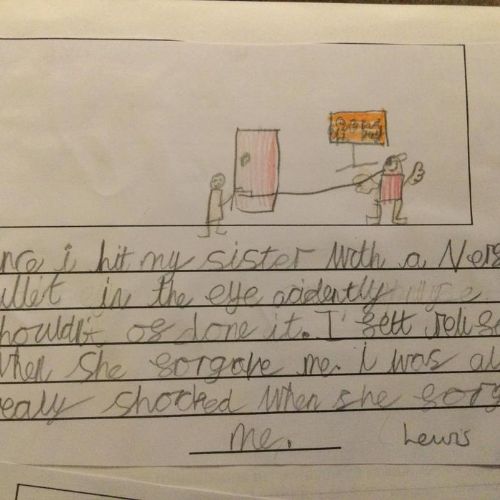 nce i hit my sister with a Nerf
ullet in the eye acidently
houldn't of done it. I felt
when she forgave me. i was al
ealy shocked when she forg
me.
Lewis